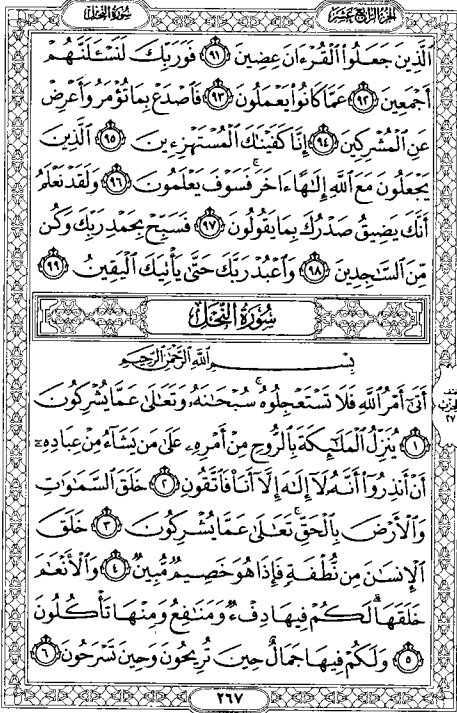 الجزء الرابع عشر
سورة النحل
الَّذِينَ جَعَلُوا۟ الْقُرْءَانَ عِضِينَ ٩١ فَوَرَبِّكَ لَنَسْـَٔلَنَّهُمْ
أَجْمَعِينَ ٩٢ عَمَّا كَانُوا۟ يَعْمَلُونَ ٩٣ فَاصْدَعْ بِمَا تُؤْمَرُ وَأَعْرِضْ
عَنِ الْمُشْرِكِينَ ٩٤ إِنَّا كَفَيْنَٰكَ الْمُسْتَهْزِءِينَ ٩٥ الَّذِينَ
يَجْعَلُونَ مَعَ اللَّهِ إِلَٰهًا ءَاخَرَ ۚ فَسَوْفَ يَعْلَمُونَ ٩٦ وَلَقَدْ نَعْلَمُ
أَنَّكَ يَضِيقُ صَدْرُكَ بِمَا يَقُولُونَ ٩٧ فَسَبِّحْ بِحَمْدِ رَبِّكَ وَكُن
مِّنَ السَّٰجِدِينَ ٩٨ وَاعْبُدْ رَبَّكَ حَتَّىٰ يَأْتِيَكَ الْيَقِينُ ٩٩
سُورَةُ النَّحْلِ
بِسْمِ اللَّهِ الرَّحْمَٰنِ الرَّحِيمِ
أَتَىٰٓ أَمْرُ اللَّهِ فَلَا تَسْتَعْجِلُوهُ ۚ سُبْحَٰنَهُۥ وَتَعَٰلَىٰ عَمَّا يُشْرِكُونَ
١ يُنَزِّلُ الْمَلَٰٓئِكَةَ بِالرُّوحِ مِنْ أَمْرِهِۦ عَلَىٰ مَن يَشَآءُ مِنْ عِبَادِهِۦٓ
أَنْ أَنذِرُوٓا۟ أَنَّهُۥ لَآ إِلَٰهَ إِلَّآ أَنَا۠ فَاتَّقُونِ ٢ خَلَقَ السَّمَٰوَٰتِ
وَالْأَرْضَ بِالْحَقِّ ۚ تَعَٰلَىٰ عَمَّا يُشْرِكُونَ ٣ خَلَقَ
الْإِنسَٰنَ مِن نُّطْفَةٍ فَإِذَا هُوَ خَصِيمٌ مُّبِينٌ ٤ وَالْأَنْعَٰمَ
خَلَقَهَا ۗ لَكُمْ فِيهَا دِفْءٌ وَمَنَٰفِعُ وَمِنْهَا تَأْكُلُونَ
٥ وَلَكُمْ فِيهَا جَمَالٌ حِينَ تُرِيحُونَ وَحِينَ تَسْرَحُونَ ٦
نصف
الحزب
٢٧
٢٦٧